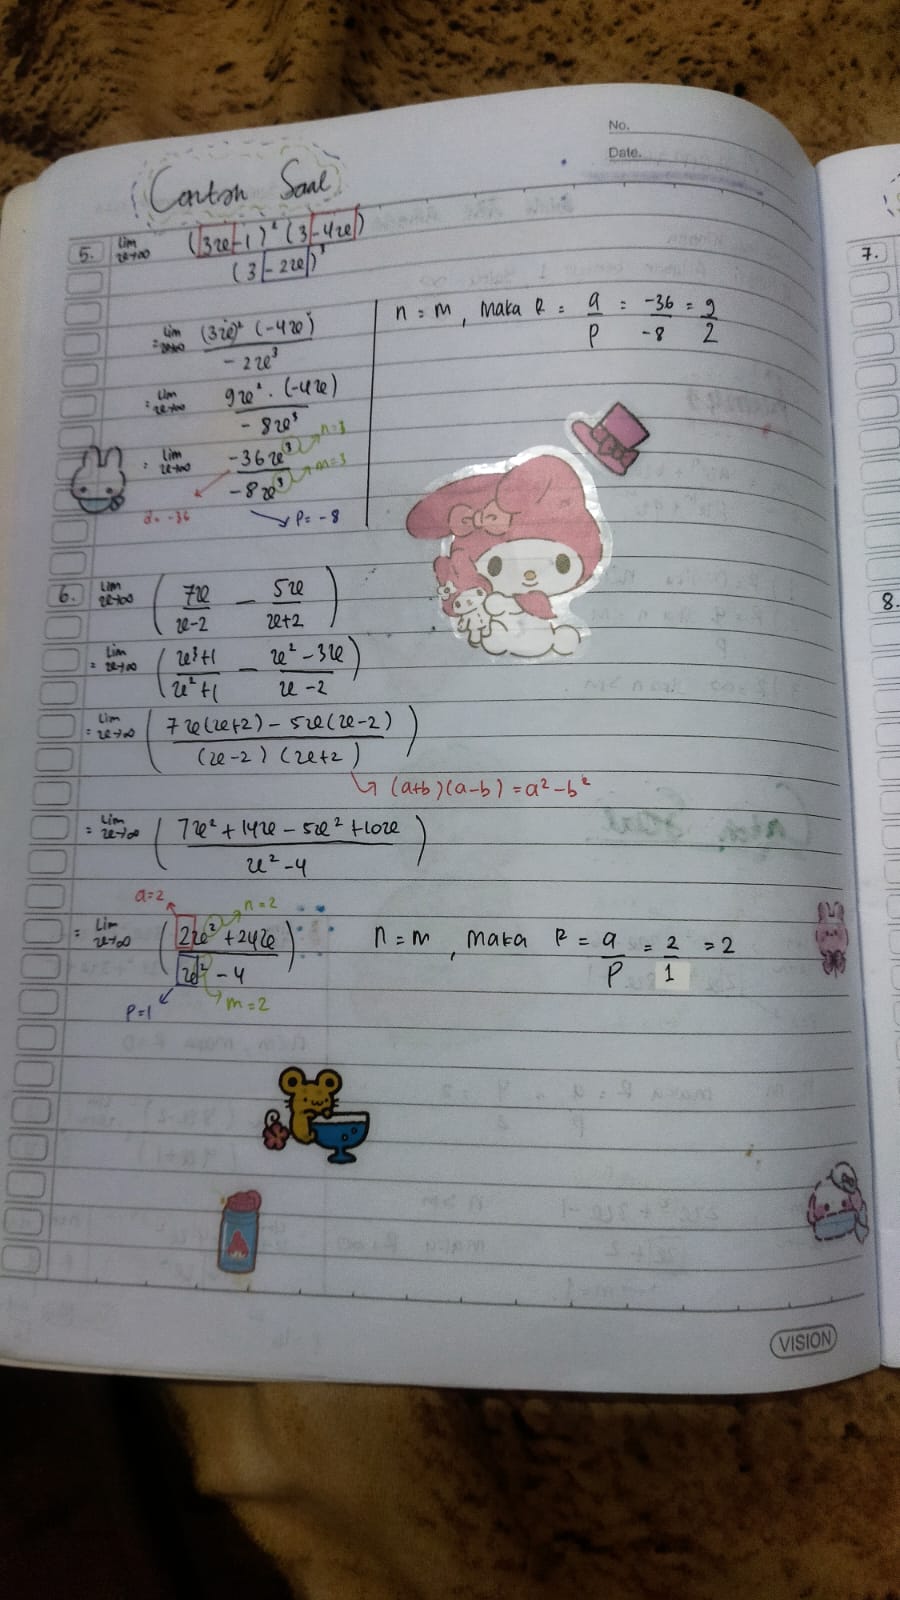 No.
Date.
Contoh Soal
5. lim x→∞ (3x-1)² (3-4x) / (3-2x)³
= lim x→∞ (3x)² (-4x) / -2x³
= lim x→∞ 9x² · (-4x) / -8x³
= lim x→∞ -36x³ / -8x³
n=3
m=3
a = -36
P = -8
n = m, maka R = a/P = -36/-8 = 9/2
6. lim x→∞ ( 7x/x-2 - 5x/x+2 )
= lim x→∞ ( x³+1/x²+1 - x²-3x/x-2 )
= lim x→∞ ( 7x(x+2) - 5x(x-2) / (x-2) (x+2) )
↳ (a+b)(a-b) = a²-b²
= lim x→∞ ( 7x² + 14x - 5x² + 10x / x² - 4 )
a=2
n=2
= lim x→∞ ( 2x² + 24x / x² - 4 )
P=1
m=2
n = m, maka R = a/P = 2/1 = 2
7.
8.
VISION